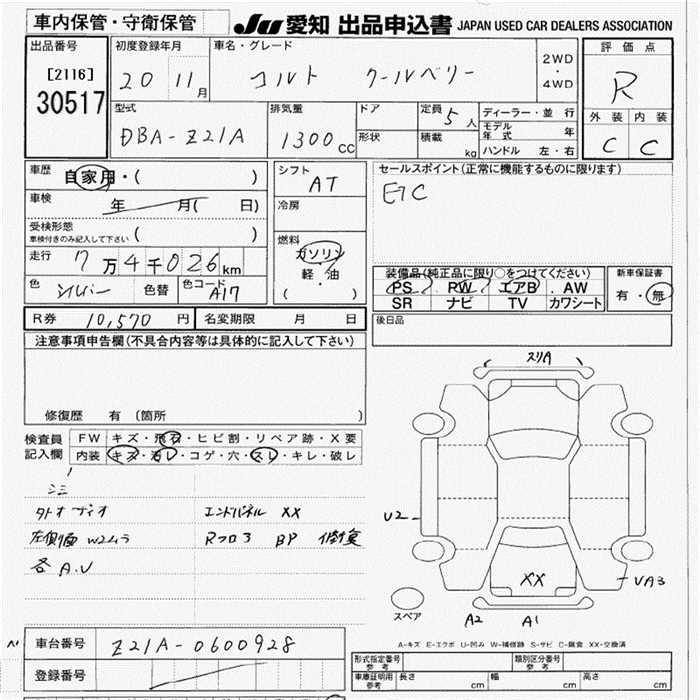 車内保管・守衛保管
JU 愛知 出品申込書 JAPAN USED CAR DEALERS ASSOCIATION
出品番号 初度登録年月 車名・グレード 評価点
[2116]
30517
20 11月 コルト クールベリー 2WD・4WD R
型式 排気量 ドア 定員 5人 ディーラー・並行 外装 内装
DBA-Z21A 1300cc 形状 積載 kg モデル年式 年 C C
ハンドル 左・右
車歴 自家用・( ) シフト AT セールスポイント(正常に機能するものに限ります)
車検 年 月( 日) 冷房 ETC
受検形態
車検付きのみ記入して下さい ( )
燃料 ガソリン 軽・油 ( )
走行 7万4千026km 装備品(純正品に限り○をつけてください) 新車保証書
色 シルバー 色替 色コード A17 PS PW エアB AW 有・無
SR ナビ TV カワシート
R券 10,570円 名変期限 月 日 後日品
注意事項申告欄(不具合内容等は具体的に記入して下さい)
修復歴 有 (箇所 )
検査員記入欄 FW キズ・飛石・ヒビ割・リペア跡・X要
内装 キズ・汚レ・コゲ・穴・スレ・キレ・破レ
シミ
タトオデイオ エンドパネル XX
左側面 W2ムラ Rフロ3 BP 修復
各 A.U
スリA
U2
XX
UA3
A2 A1
スペア
A-キズ E-エクボ U-凹み W-補修跡 S-サビ C-腐食 XX-交換済
車台番号 Z21A-0600928
登録番号
形式指定番号 参考 類別区分番号 参考
車庫証明用 参考 長さ cm 幅 cm 高さ cm